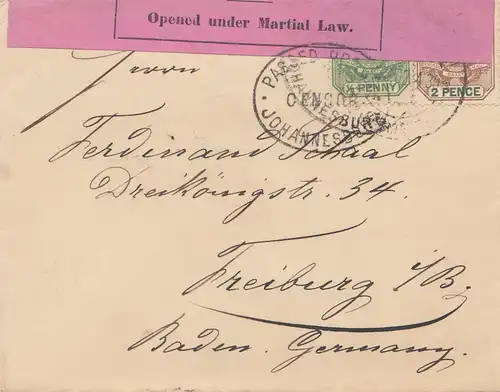 Opened under Martial Law.
½ PENNY
2 PENCE
PASSED PRESS
CENSOR
JOHANNESBURG
JOHANNESBURG
Herrn
Ferdinand Schaal
Dreikönigstr. 34.
Freiburg i/B.
Baden. Germany.